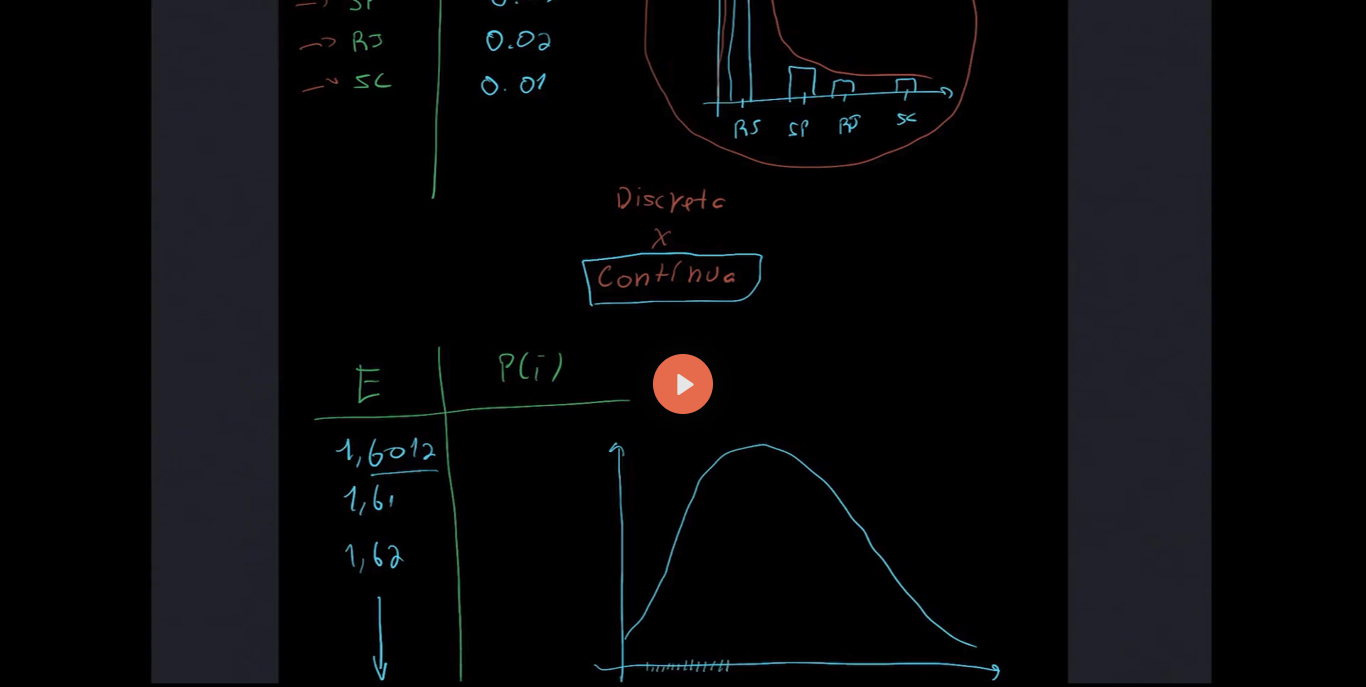 SP
RJ 0.02
SC 0.01
RS SP RJ SC
Discreta
X
Contínua
E P(i)
1,6012
1,61
1,62